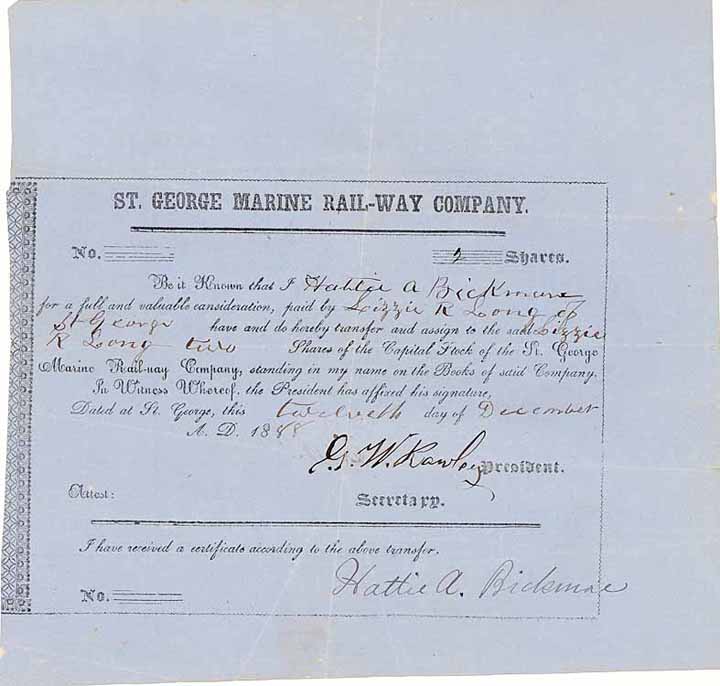 ST. GEORGE MARINE RAIL-WAY COMPANY.
No. 2 Shares.
Be it Known that I Hattie A Bickmore
for a full and valuable consideration, paid by Lizzie K Long of
St George have and do hereby transfer and assign to the said Lizzie
K Long two Shares of the Capital Stock of the St. George
Marine Rail-way Company, standing in my name on the Books of said Company.
In Witness Whereof, the President has affixed his signature,
Dated at St. George, this twelveth day of December
A. D. 1888
G. W. Rawley President.
Attest: Secretary.
I have received a certificate according to the above transfer,
Hattie A. Bickmore
No.